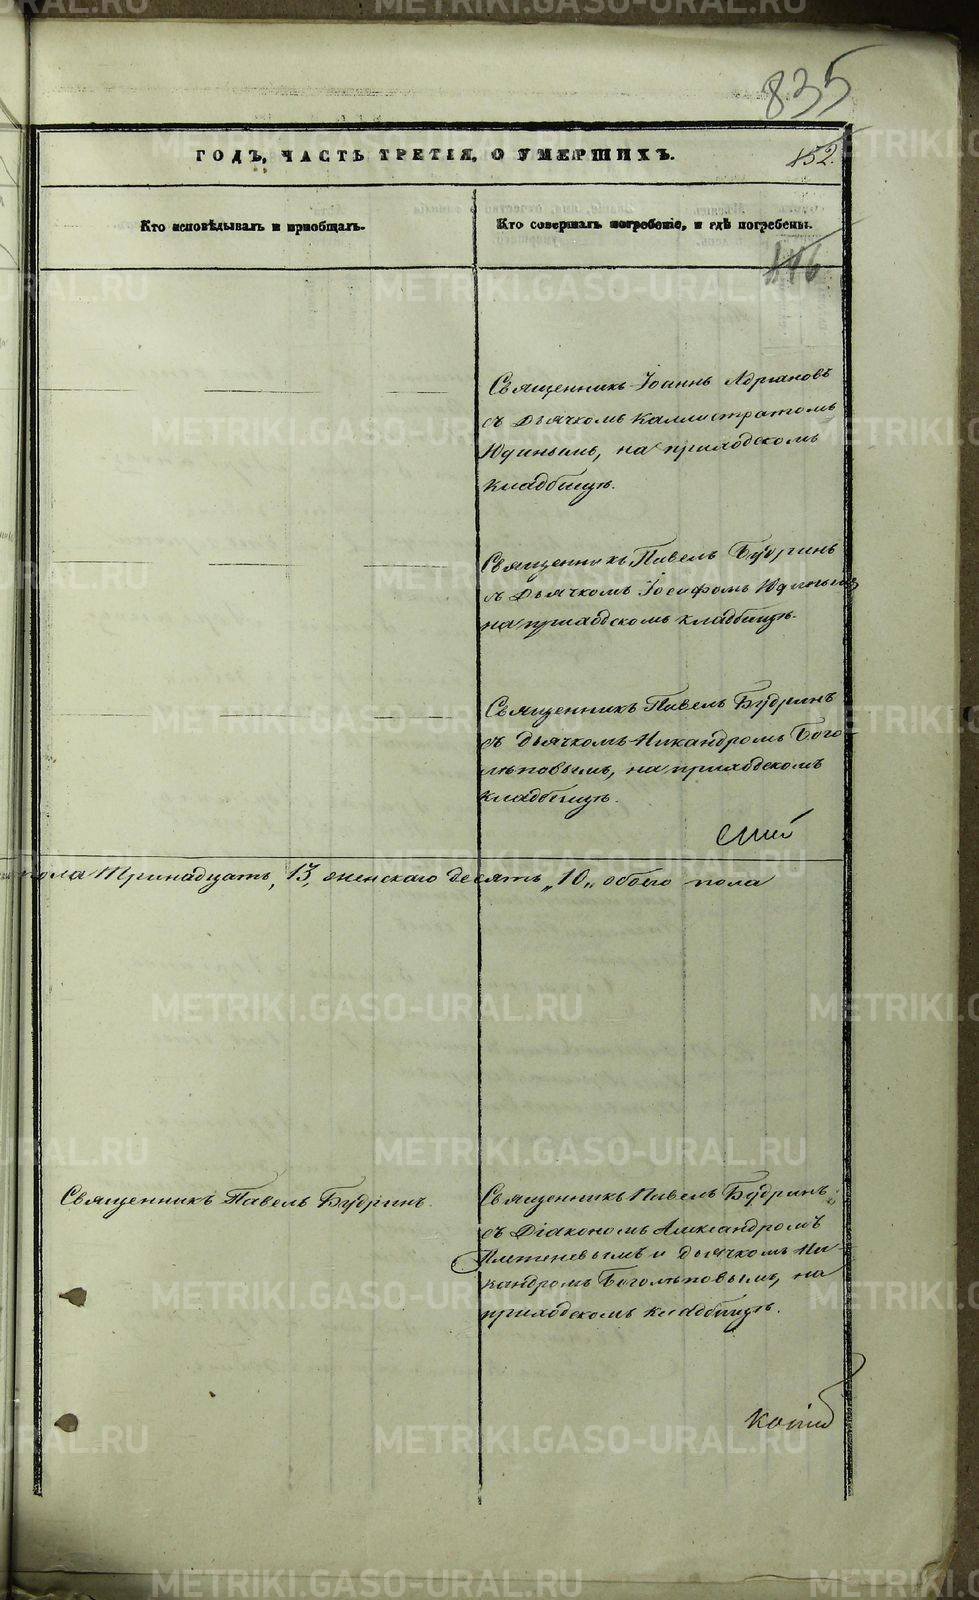 835
ГОДЪ, ЧАСТЬ ТРЕТІЯ, О УМЕРШИХЪ.
152.
Кто исповѣдывалъ и пріобщалъ.
Кто совершалъ погребеніе, и гдѣ погребены.
146
Священникъ Іоаннъ Адріановъ
съ Дьячкомъ Каллистратомъ
Юдинымъ, на приходскомъ
кладбищѣ.
Священникъ Павелъ Будринъ
съ Дьячкомъ Іосифомъ Юдинымъ
на приходскомъ кладбищѣ.
Священникъ Павелъ Будринъ
съ дьячкомъ Никандромъ Бого-
лѣповымъ, на приходскомъ
кладбищѣ.
пола тринадцать „13„ женскаго десять „10„ обоего пола
Священникъ Павелъ Будринъ.
Священникъ Павелъ Будринъ
съ Діакономъ Александромъ
Плетеневымъ и дьячкомъ Ни-
кандромъ Боголѣповымъ, на
приходскомъ кладбищѣ.
METRIKI.GASO-URAL.RU